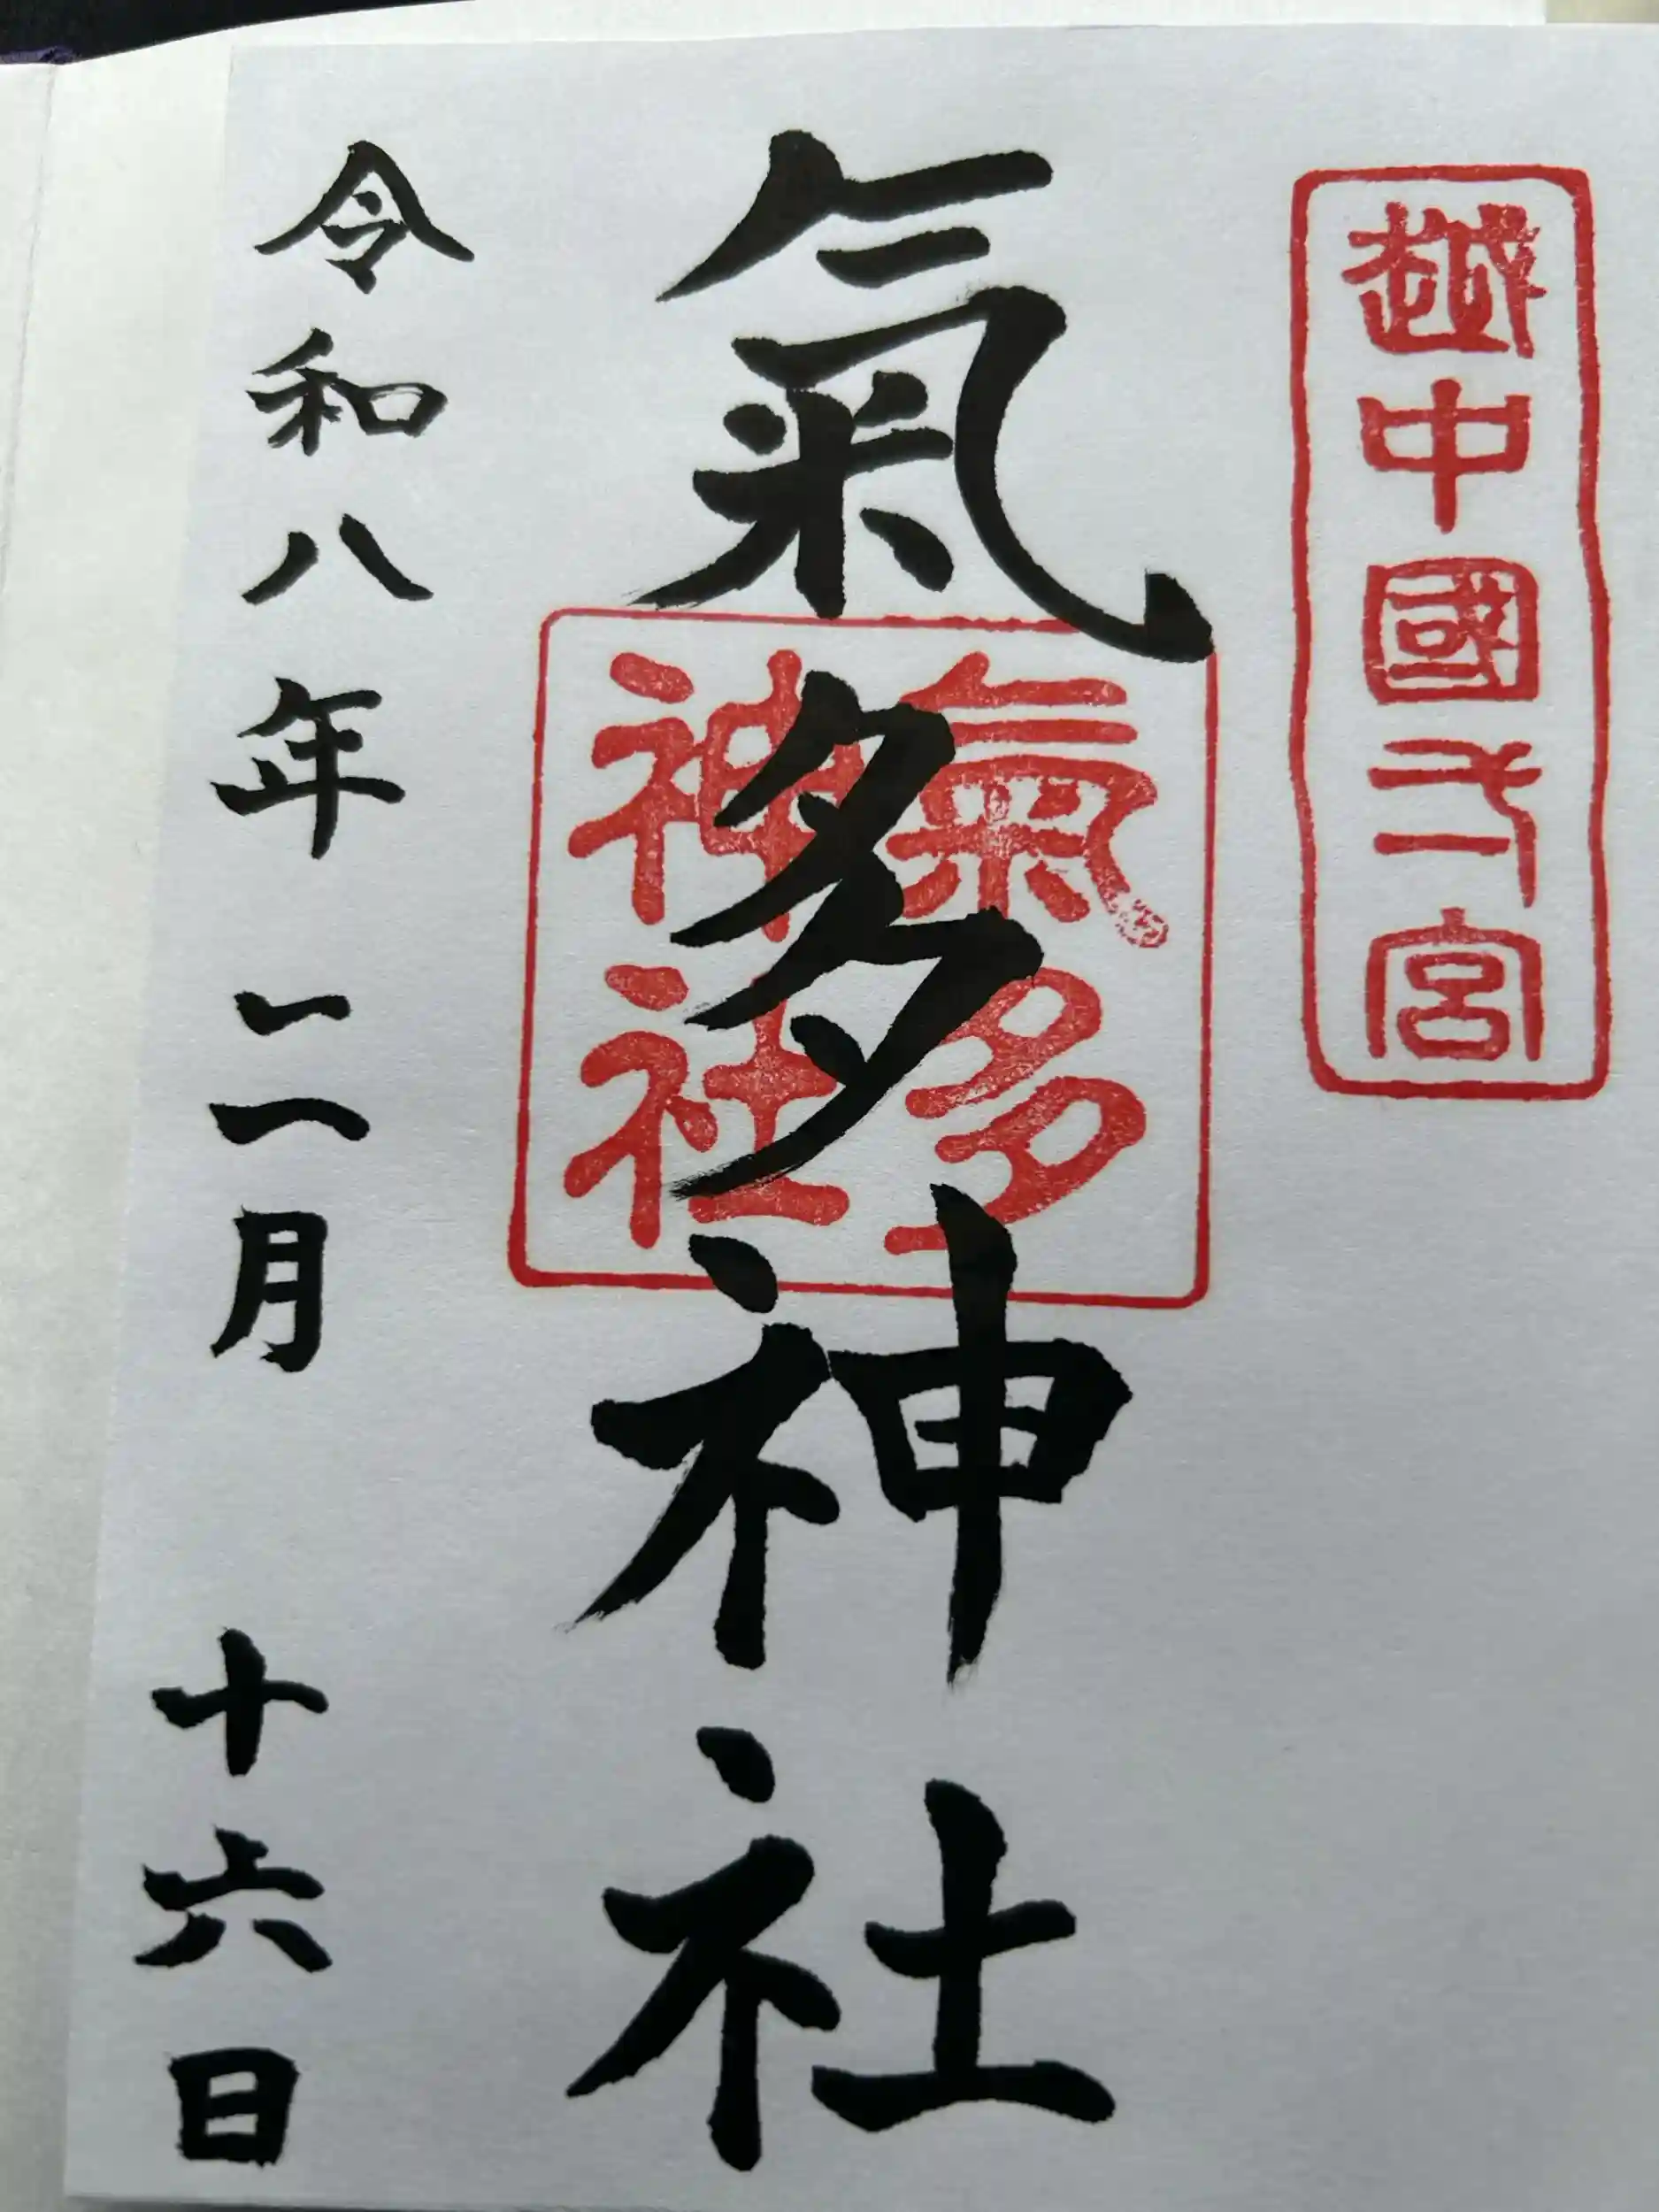 越中國弌宮
氣多神社
氣多
神社
令和八年二月十六日